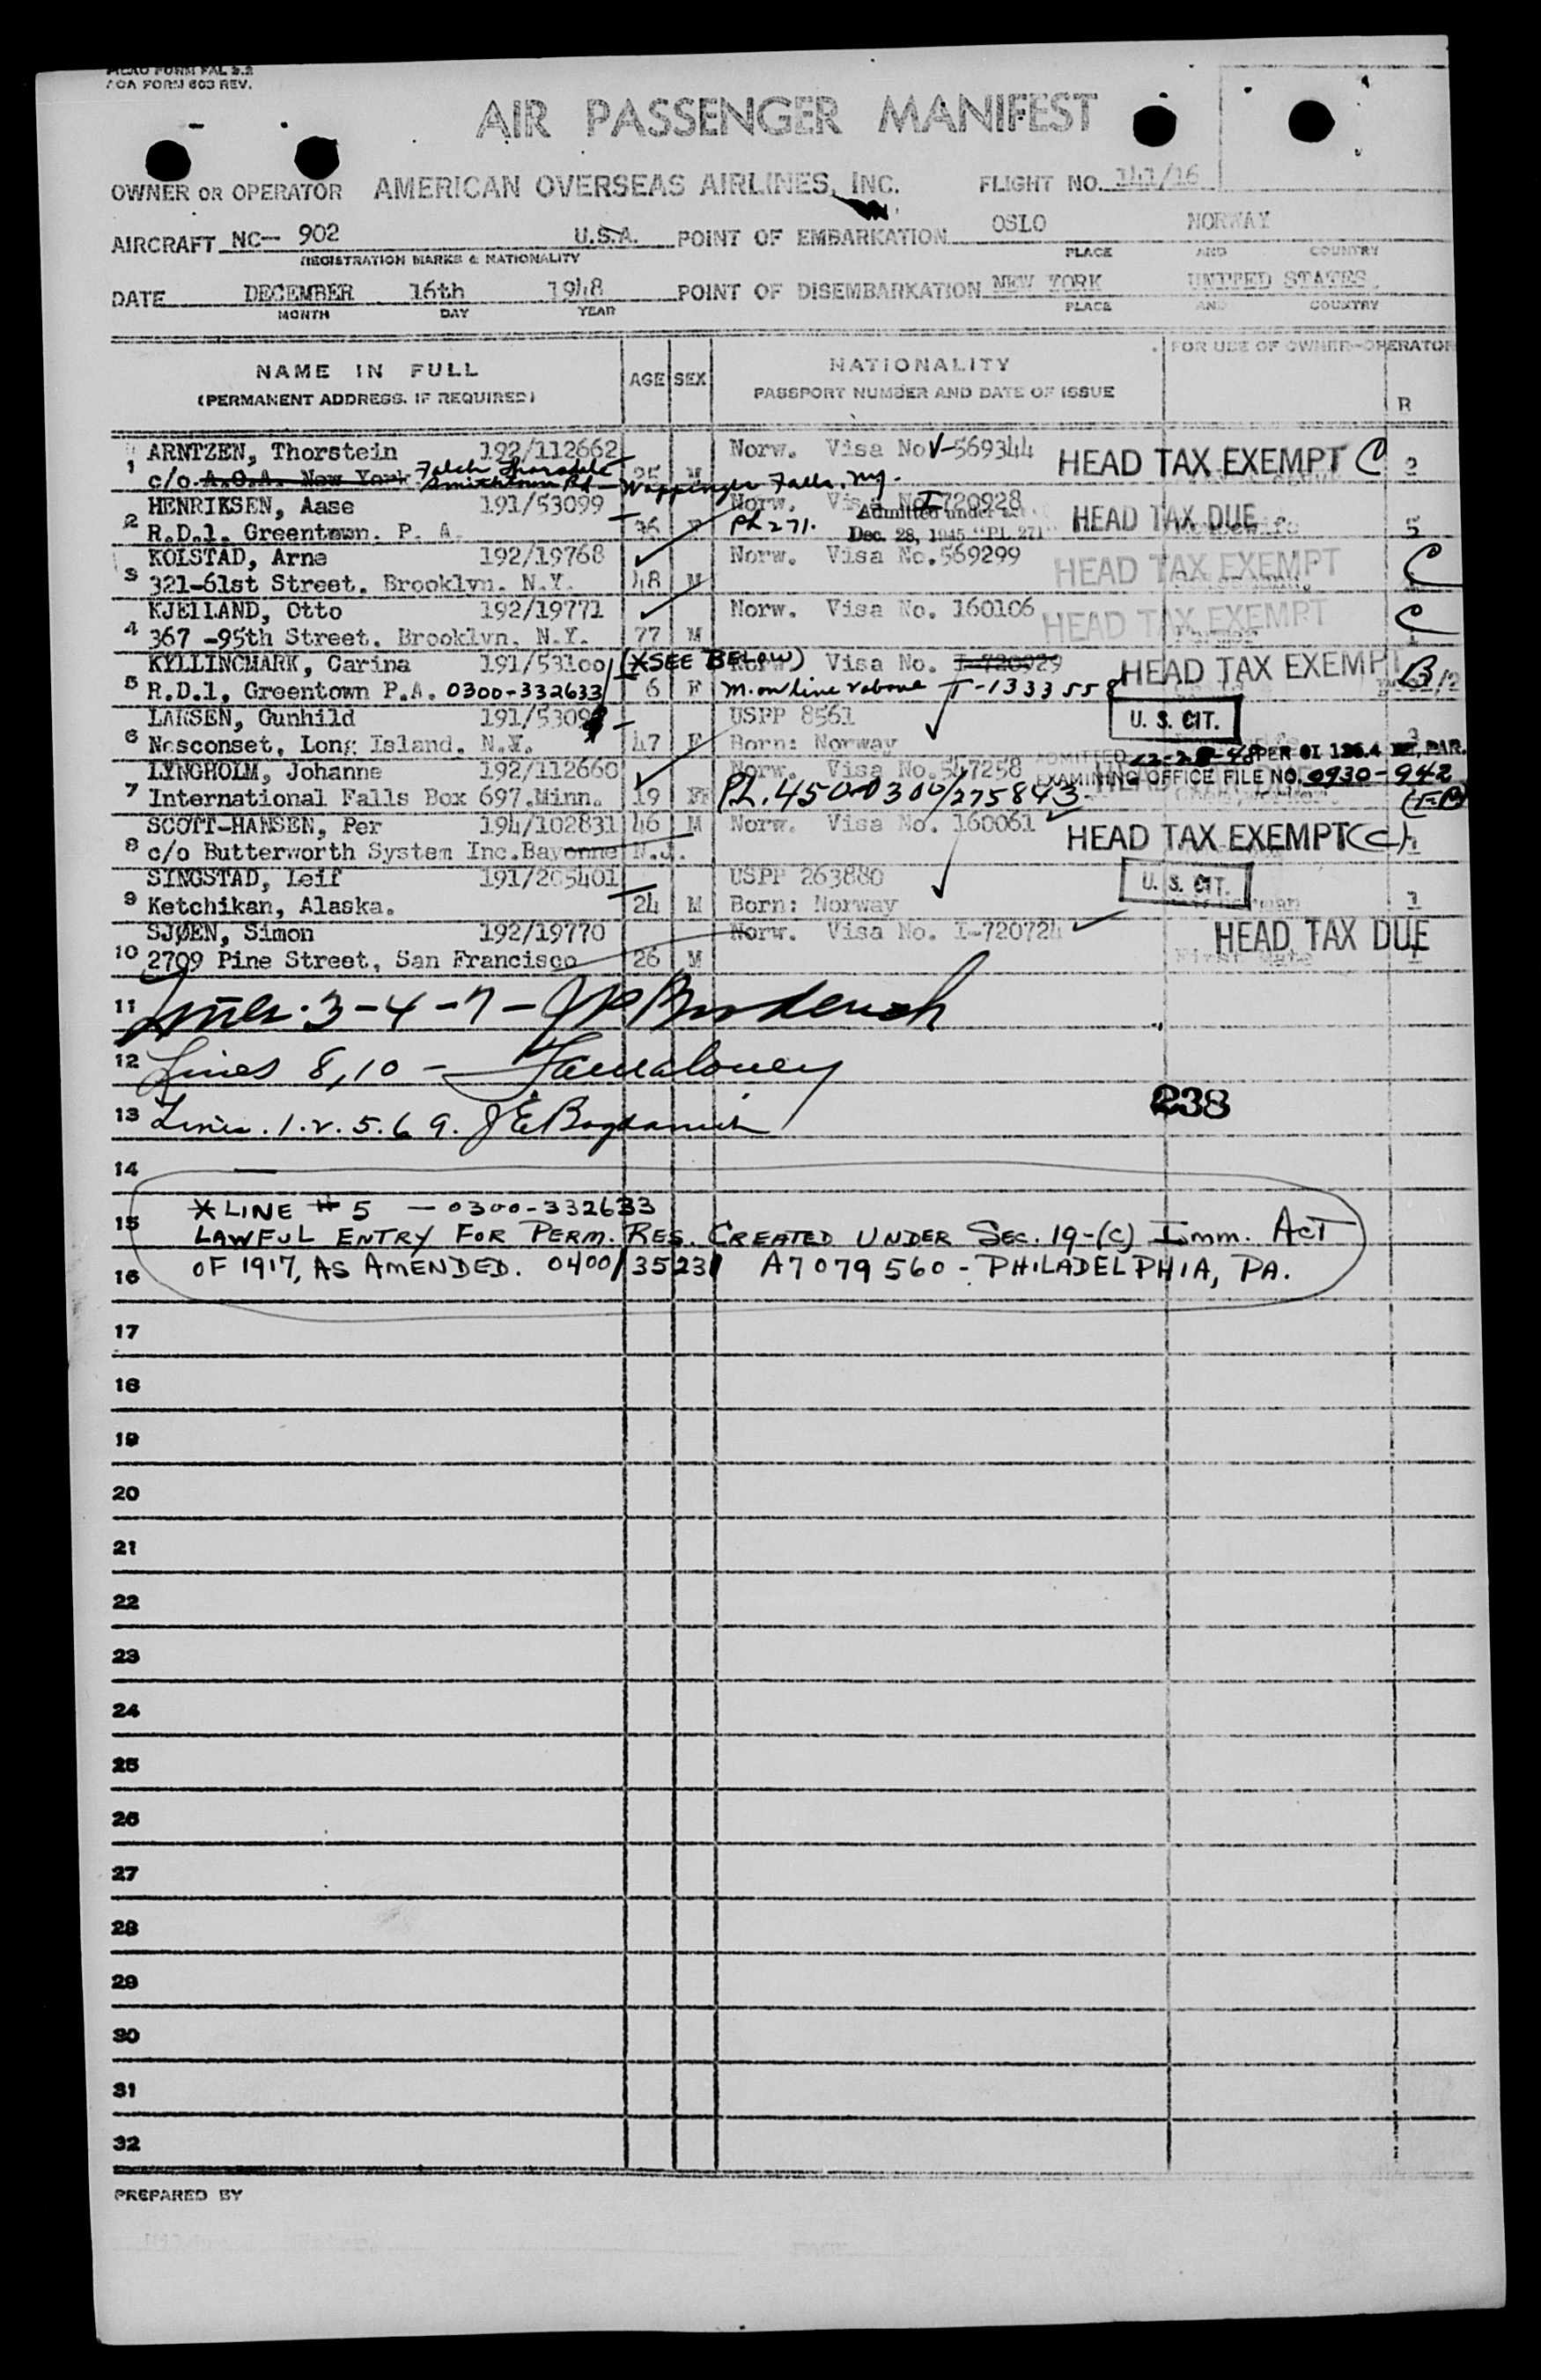 AOA FORM 603 REV.
AIR PASSENGER MANIFEST
OWNER OR OPERATOR AMERICAN OVERSEAS AIRLINES, INC. FLIGHT NO. 141/16
AIRCRAFT NC- 902 U.S.A. POINT OF EMBARKATION OSLO NORWAY
REGISTRATION MARKS & NATIONALITY PLACE AND COUNTRY
DATE DECEMBER 16th 1948 POINT OF DISEMBARKATION NEW YORK UNITED STATES
MONTH DAY YEAR PLACE AND COUNTRY
NAME IN FULL
(PERMANENT ADDRESS, IF REQUIRED)
AGE SEX
NATIONALITY
PASSPORT NUMBER AND DATE OF ISSUE
FOR USE OF OWNER-OPERATOR
R
1 ARNTZEN, Thorstein 192/112662 Norw. Visa No V-569344 HEAD TAX EXEMPT C 2
c/o A.O.A. New York 25 M Smithtown Rd - Wappinger Falls. NY.
2 HENRIKSEN, Aase 191/53099 Norw. Visa No I-720928 HEAD TAX DUE
R.D.1. Greentown. P. A. PL 271. Admitted under Dec. 28, 1945 "PL 271" 5
3 KOLSTAD, Arne 192/19768 Norw. Visa No.569299 HEAD TAX EXEMPT C
321-61st Street. Brooklyn. N.Y. 48 M
4 KJELLAND, Otto 192/19771 Norw. Visa No. 160106 HEAD TAX EXEMPT C
367 -95th Street. Brooklyn. N.Y. 77 M
5 KYLLINGMARK, Carina 191/53100 (*SEE BELOW) Norw. Visa No. I-720929 HEAD TAX EXEMPT B
R.D.1, Greentown P.A. 0300-332633 6 F M. on line 2 above I-1333558
6 LARSEN, Gunhild 191/5309 USPP 8561 U. S. CIT.
Nesconset, Long Island. N.Y. 47 F Born: Norway 3
ADMITTED PER OI 126.4 PAR.
7 LYNGHOLM, Johanne 192/112660 Norw. Visa No.547258 EXAMINING OFFICE FILE NO. 0930-942
International Falls Box 697.Minn. 19 F PL. 450-0300/275843
8 SCOTT-HANSEN, Per 194/102831 46 M Norw. Visa No. 160061 HEAD TAX EXEMPT (C)
c/o Butterworth System Inc.Bayonne N.J.
9 SINGSTAD, Leif 191/205401 USPP 263880 U. S. CIT.
Ketchikan, Alaska. 24 M Born: Norway
10 SJØEN, Simon 192/19770 Norw. Visa No. I-720724 HEAD TAX DUE
2709 Pine Street, San Francisco 26 M First Mate
11 Lines 3-4-7 -
12 Lines 8,10 -
238
13 Lines. 1. 2. 5. 6 9. J E Bogdanich
14
15 * LINE # 5 - 0300-332633
LAWFUL ENTRY FOR PERM. RES. CREATED UNDER SEC. 19-(C) IMM. ACT
16 OF 1917, AS AMENDED. 0400/35231 A7079560 - PHILADELPHIA, PA.
17
18
19
20
21
22
23
24
25
26
27
28
29
30
31
32
PREPARED BY